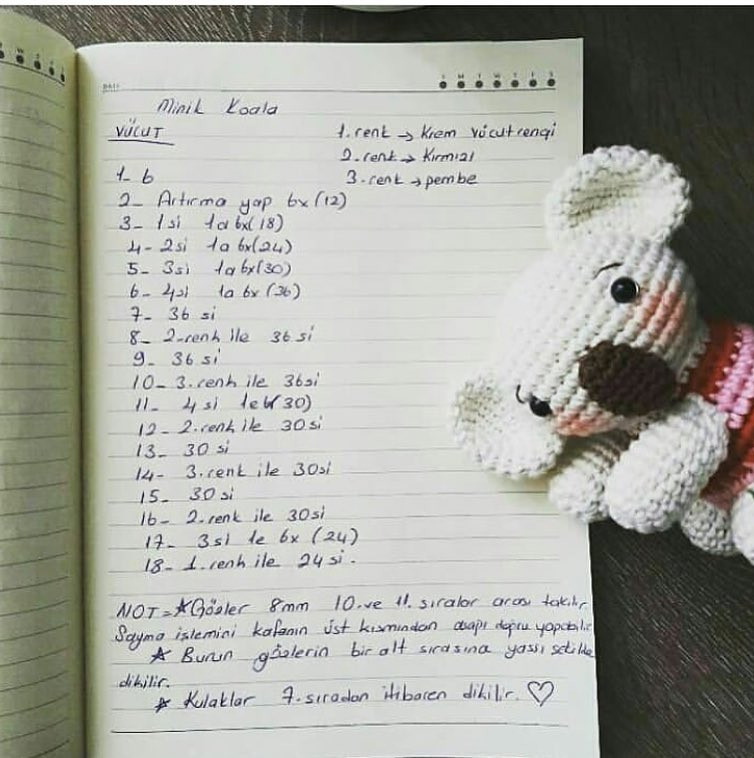 Minik Koala
VÜCUT
1. renk → Krem vücut rengi
2. renk → Kırmızı
3. renk → pembe
1- 6
2- Artırma yap 6x (12)
3- 1si 1a 6x(18)
4- 2si 1a 6x(24)
5- 3si 1a 6x(30)
6- 4si 1a 6x (36)
7- 36 si
8- 2.renk ile 36 si
9- 36 si
10- 3.renk ile 36si
11- 4 si 1e 6(30)
12- 2.renk ile 30si
13- 30 si
14- 3.renk ile 30si
15- 30 si
16- 2.renk ile 30si
17- 3si 1e 6x (24)
18- 1.renk ile 24 si.
NOT=★Gözler 8mm 10.ve 11. sıralar arası takılır
Sayma işlemini kafanın üst kısmından aşağı doğru yapabilir
★ Burun gözlerin bir alt sırasına yassı şekilde
dikilir.
★ Kulaklar 7.sıradan itibaren dikilir. ♡